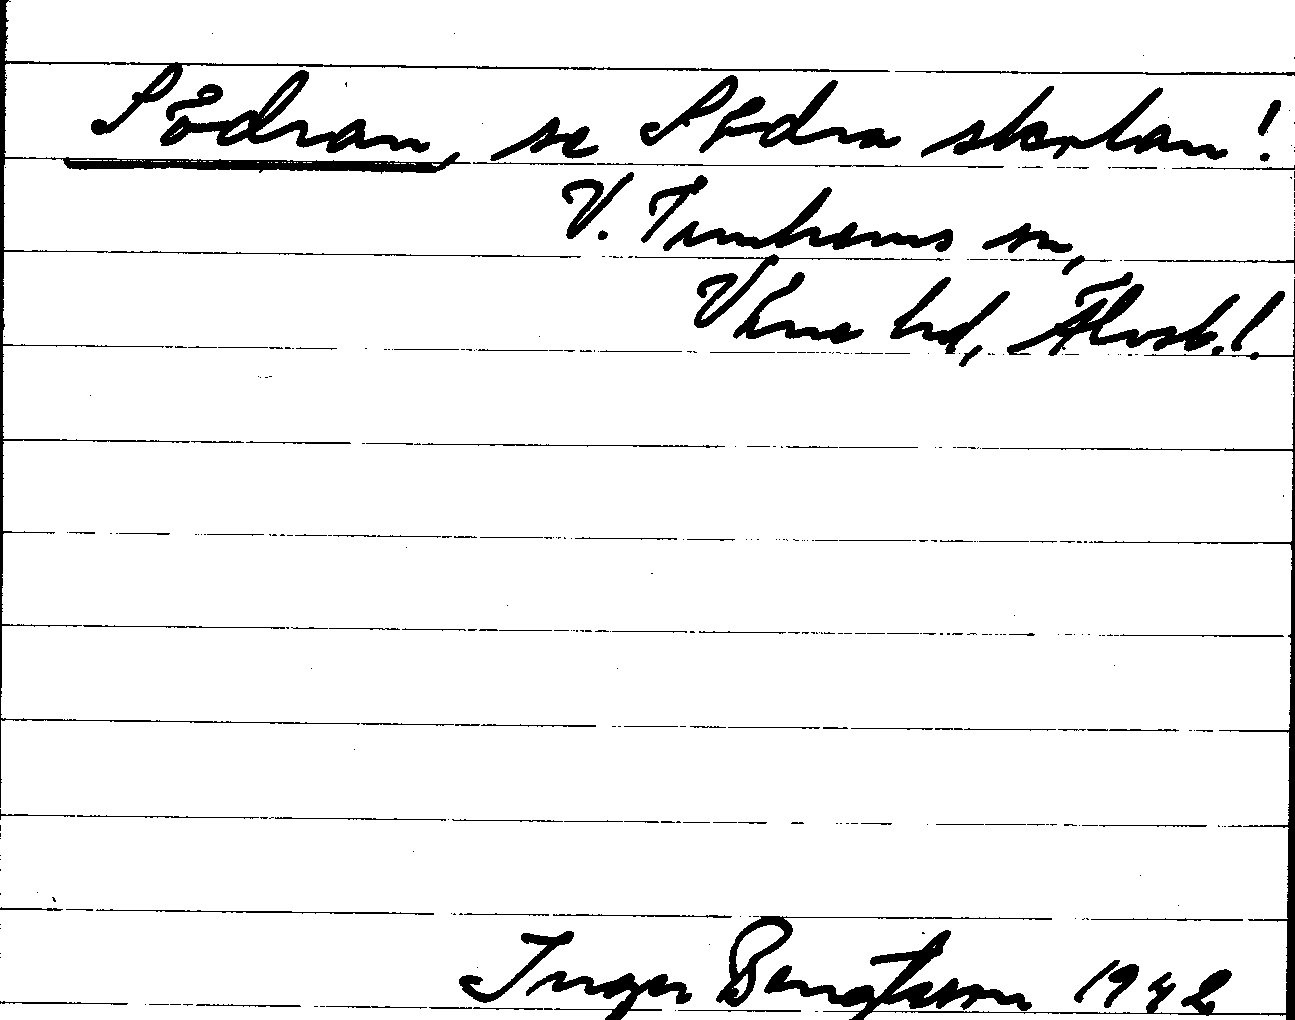 Södran, se Södra skolan!
V. Tunhems sn,
Väne hd, Älvsb. l.
Inger Bengtsson 1942